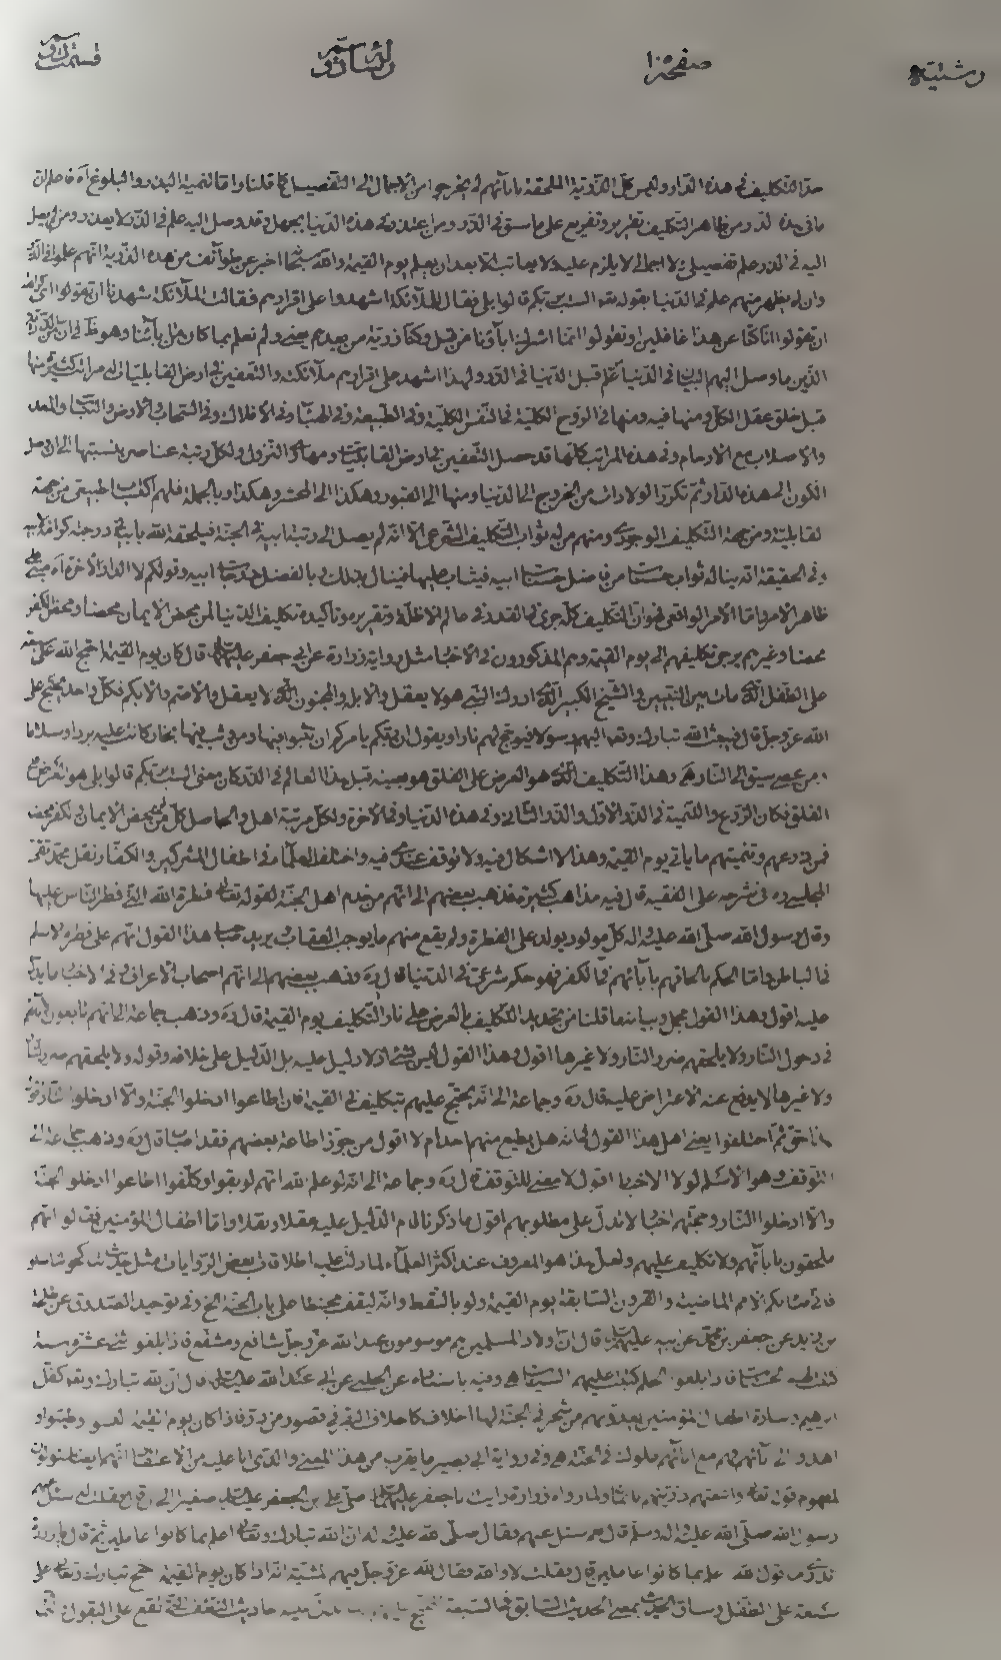 صفحه ١٠٥
هذه الدار وليس كل الذرية الملحقة بابائهم لم يخرجوا من الاجمال الى التفصيل كما قلنا واما تنمية البذر والبلوغ اه فاعلم ان
ومن ظاهر التكليف تقرير وتفريع على ما سبق فى الذر ومن اعتذر فى هذه الدنيا بجهل وقد وصل اليه علم فى الذر لا يعذر ومن لم يصل
اليه فى الذر علم تفصيلى لا اجمالى لا يلزم عليه ولا يعاتب الا بعد ان يعلم يوم القيمة والله سبحانه اخبر عن طوائف من هذه الذرية انهم علموا فى الذر
وان لم يظهر منهم علم فى الدنيا بقوله الست بربكم قالوا بلى فقال للملائكة اشهدوا على اقرارهم فقالت الملائكة شهدنا ان تقولوا
ان تقولوا انا كنا عن هذا غافلين او تقولوا انما اشرك اباؤنا من قبل وكنا ذرية من بعدهم يعنى ولم نعلم بما كان من ابائنا وهو
الذين ما وصل اليهم البيان فى الدنيا قبل الدنيا فى الذر ولهذا اشهد على اقرارهم ملائكته والتعفين فى ارض القابليات له مراتب كثيرة منها
قبل خلق عقل الكل ومنها فيه ومنها فى الروح الكلية فى النفس الكلية وفى الطبيعة وفى الهباء وفى الافلاك وفى السحاب والارض والنبات والمعدن
والاصلاب مع الارحام وفى هذه المراتب كلها قد حصل التعفين فى ارض القابليات ومهاوى النزول ولكل رتبة عناصر بنسبتها الى ان وصل
الكون الى هذه الدار ثم تكرر الولادات من الخروج الى الدنيا ومنها الى القبور وهكذا الى المحشر وهكذا وبالجملة فلهم اكتساب طبيعى من جهة
القابلية ومن جهة التكليف الوجودى ومنهم من له ثواب التكليف الشرعى الا انه لم يصل الى رتبة ابيه فى الجنة فيلحقه الله بابيه فى درجته كرامة لابيه
وفى الحقيقة انه يناله ثواب حسنات من فاضل حسنات ابيه فيثاب عليها فينال بذلك بالفضل درجات ابيه وقولكم لان الدار الاخرة اه مبنى على
ظاهر الامر واما الامر الواقعى فهو ان التكليف كله جرى فى القدر وفى عالم الاظلة وتقريره وتاكيده تكليف الدنيا لمن محض الايمان محضا ومحض الكفر
محضا وغيرهم يرجى تكليفهم الى يوم القيمة وهم المذكورون فى الاخبار مثل رواية زرارة عن ابى جعفر عليه السلام قال اذا كان يوم القيمة احتج الله على سبعة
على الطفل الذى مات بين النبيين والشيخ الكبير الذى ادرك النبى وهو لا يعقل والابله والمجنون الذى لا يعقل والاصم والابكم فكل واحد يحتج على
الله عز وجل قال فيبعث الله تبارك وتعالى اليهم رسولا فيؤجج لهم نارا ويقول ان ربكم يامركم ان تثبوا فيها فمن وثب فيها كانت عليه بردا وسلاما
ومن عصى سيق الى النار وهذا التكليف الذى هو العرض على الفلق هو بعينه قبل هذا العالم فى الذر كان معنى الست بربكم قالوا بلى هو العرض على
الفلق فكان الزرع والتنمية فى الذر الاول والذر الثانى وفى هذه الدنيا وفى الاخرة ولكل مرتبة اهل والحاصل كل من لم يمحض الايمان او الكفر محضا
فمن زرعهم وتنميتهم ما ياتى يوم القيمة وهذا لا اشكال فيه ولا توقف عندى فيه واختلف العلماء فى اطفال المشركين والكفار ونقل محمد تقى
المجلسى ره فى شرحه على الفقيه قال فيه مذاهب كثيرة فقد ذهب بعضهم الى انهم من خدم اهل الجنة لقوله تعالى فطرة الله التى فطر الناس عليها
وقال رسول الله صلى الله عليه واله كل مولود يولد على الفطرة ولم يقع منهم ما يوجب العقاب يريد صاحب هذا القول انهم على فطرة الاسلام
فى الباطن واما الحكم بالحاقهم بابائهم فى الكفر فهو حكم شرعى فى الدنيا قال ره وذهب بعضهم الى انهم اصحاب الاعراف وفى الاخبار ما يدل
عليه اقول وهذا القول مجمل وبيانه ما قلنا من تجديد التكليف بالعرض على نار التكليف يوم القيمة قال ره وذهب جماعة الى انهم تابعون لابائهم
فى دخول النار ولا يلحقهم ضرر النار ولا غيرها اقول وهذا القول ليس بشئ اذ لا دليل عليه بل الدليل على خلافه وقوله ولا يلحقهم ضرر النار
ولا غيرها لا يدفع عنه الاعتراض عليه قال ره وجماعة الى انه يحتج عليهم بتكليف فى القيمة فان اطاعوا ادخلوا الجنة والا ادخلوا النار اقول
هذا حق ثم اختلفوا يعنى اهل هذا القول فى انه هل يطيع منهم احد ام لا اقول من جوز اطاعة بعضهم فقد اصاب قال ره وذهب جماعة الى
التوقف وهو الاسلم لولا الاخبار اقول لا معنى للتوقف قال ره وجماعة الى انه لو علم الله انهم لو بقوا وكلفوا اطاعوا ادخلوا الجنة
والا ادخلوا النار وحجتهم اخبار لا تدل على مطلوبهم اقول ما ذكرنا له م الدليل عليه عقلا ونقلا واما اطفال المؤمنين فقد قالوا انهم
ملحقون بابائهم ولا تكليف عليهم ولعل هذا هو المعروف عند اكثر العلماء لما دلت عليه اطلاقات بعض الروايات مثل حديث تناكحوا تناسلوا
فانى مباه بكم الامم الماضية والقرون السابقة يوم القيمة ولو بالسقط وانه ليقف محبنطئا على باب الجنة الخ وفى توحيد الصدوق عن طلحة
بن زيد عن جعفر بن محمد عن ابيه عليهما السلام قال ان اولاد المسلمين هم موسومون عند الله عز وجل شافع ومشفع فاذا بلغوا اثنى عشرة سنة
كتبت لهم الحسنات فاذا بلغوا الحلم كتبت عليهم السيئات وفيه باسناده عن الحلبى عن ابى عبد الله عليه السلام قال ان الله تبارك وتعالى كفل
ابرهيم وسارة اطفال المؤمنين يغذوانهم من شجر فى الجنة لها اخلاف كاخلاف البقر فى قصور من در فاذا كان يوم القيمة البسوا وطيبوا و
اهدوا الى ابائهم فهم مع ابائهم ملوك فى الجنة وفى رواية ابى بصير ما يقرب من هذا المعنى والذى انا عليه من الاعتقاد انهم ايضا
لمفهوم قوله تعالى واتبعتهم ذريتهم بايمان ولما رواه زرارة قال رايت ابا جعفر عليه السلام صلى على ابن لجعفر عليه السلام صغير الى ان قال فقلت له سئل عنهم
رسول الله صلى الله عليه واله وسلم قال قد سئل عنهم فقال صلى الله عليه واله ان الله تبارك وتعالى اعلم بما كانوا عاملين ثم قال يا زرارة
تدرى ما قوله الله اعلم بما كانوا عاملين قال فقلت لا والله فقال لله عز وجل فيهم المشية انه اذا كان يوم القيمة احتج تبارك وتعالى على
سبعة على الطفل وساق الحديث بمعنى الحديث السابق